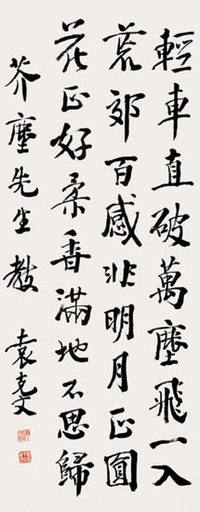 輕車直破萬塵飛一入
荒郊百感非明月正圓
花正好柔香滿地不思歸
芥塵先生教
袁克文